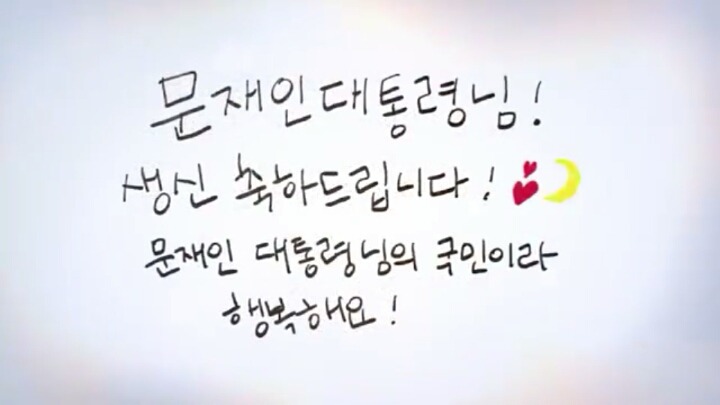 문재인대통령님!
생신 축하드립니다!
문재인 대통령님의 국민이라
행복해요!